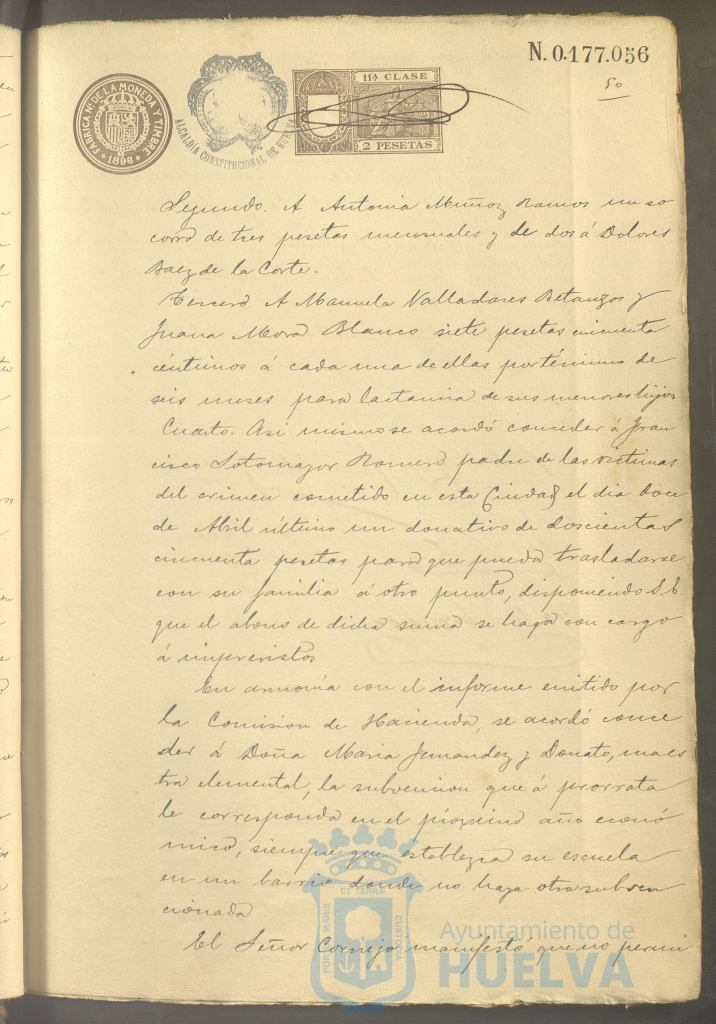 N. 0.177.056
50
FABRICA NL. DE LA MONEDA Y TIMBRE
1896
ALCALDIA CONSTITUCIONAL DE HUELVA
11ª CLASE
2 PESETAS
Segundo. A Antonia Muñoz Ramos un so
corro de tres pesetas mensuales y de dos á Dolores
Baez de la Corte.
Tercero A Manuela Valladares Betanzos y
Juana Mora Blanco siete pesetas cincuenta
céntimos á cada una de ellas por término de
seis meses para lactancia de sus menores hijos
Cuarto. Asi mismo se acordó conceder á Fran
cisco Sotomayor Romero padre de las victimas
del crimen cometido en esta Ciudad el dia doce
de Abril último un donativo de doscientas
cincuenta pesetas para que pueda trasladarse
con su familia á otro punto, disponiendo S. E.
que el abono de dicha suma se haga con cargo
á imprevistos
En armonia con el informe emitido por
la Comision de Hacienda, se acordó conce
der á Doña Maria Fernandez y Donato, maes
tra elemental, la subvencion que á prorrata
le corresponda en el próximo año econó
mico, siempre que establezca su escuela
en un barrio donde no haya otra subven
cionada.
El Señor Cornejo manifestó que no permi
PORTUS MARIS ET TERRÆ CUSTODIA
Ayuntamiento de
HUELVA